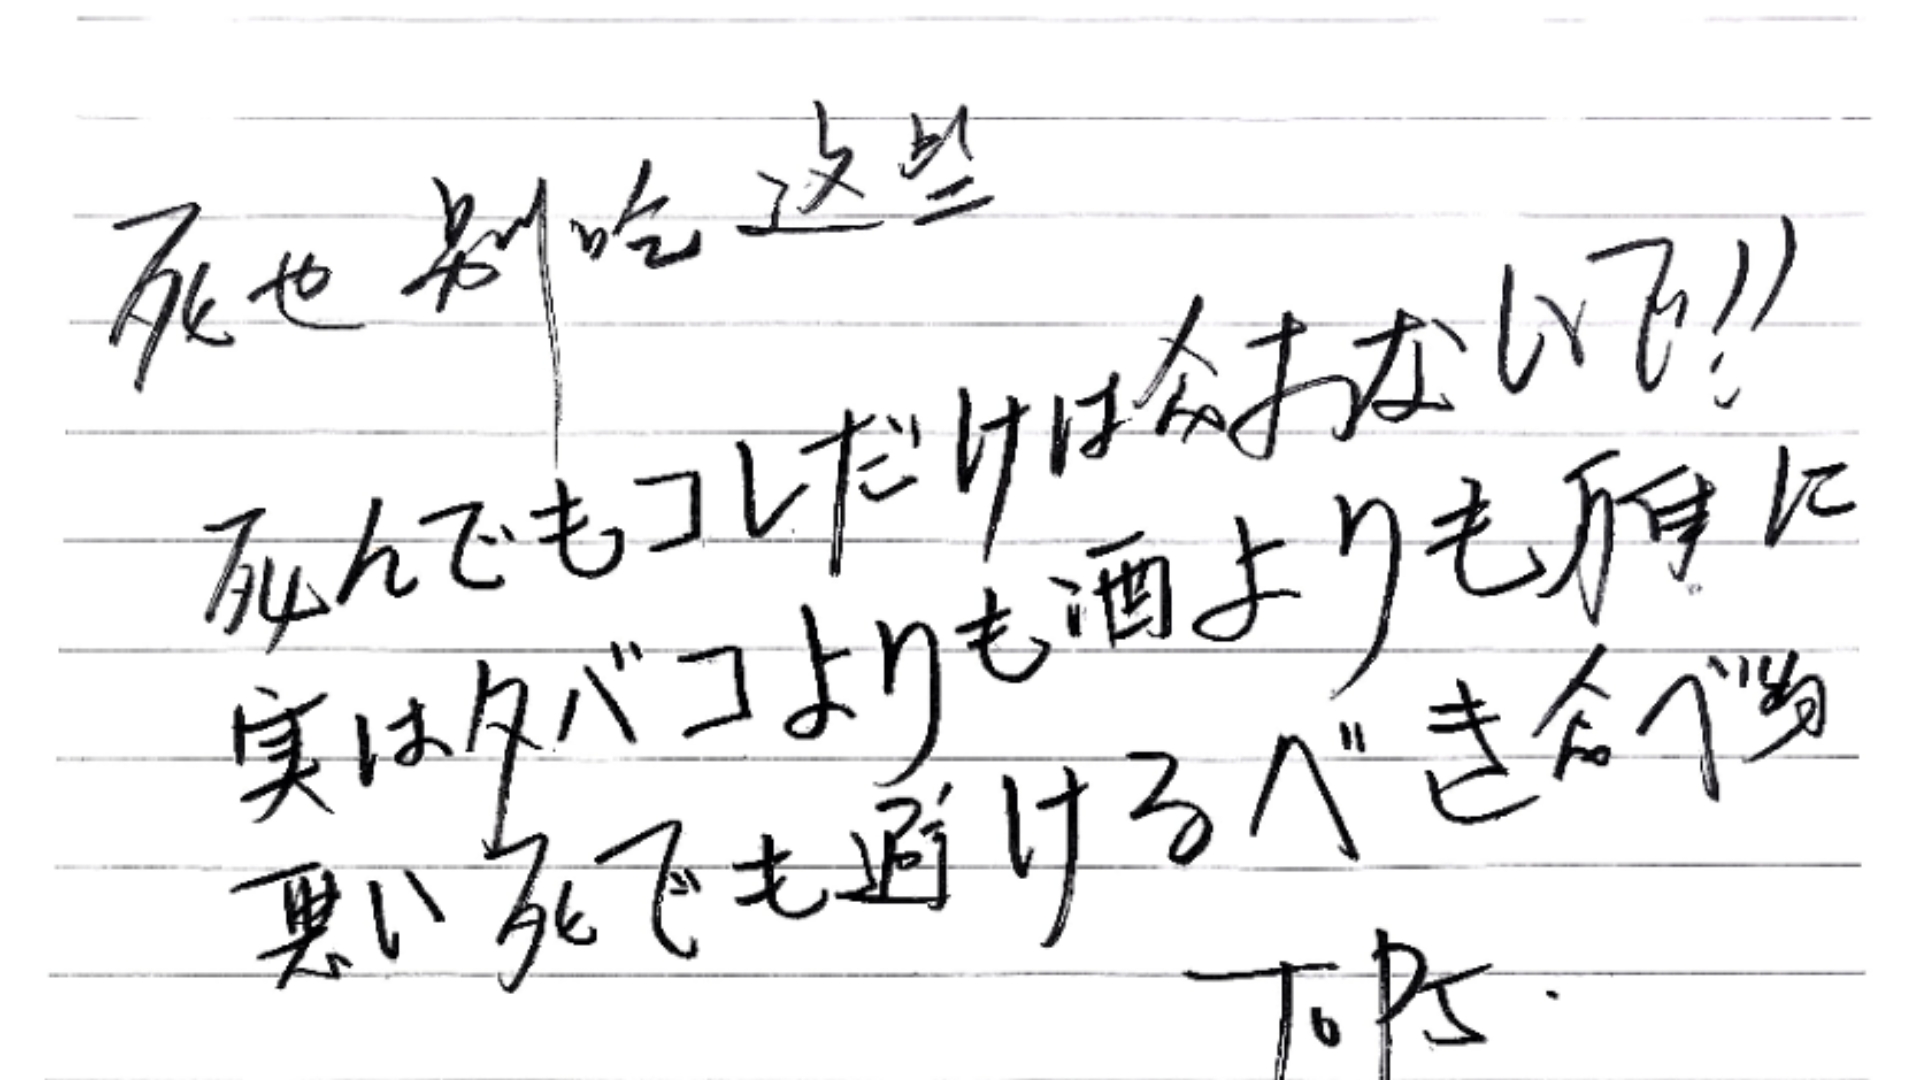 死也别吃这些
死んでもコレだけは食わないで!!
実はタバコよりも酒よりも確に
悪い死でも避けるべき食べ物
TOP5.